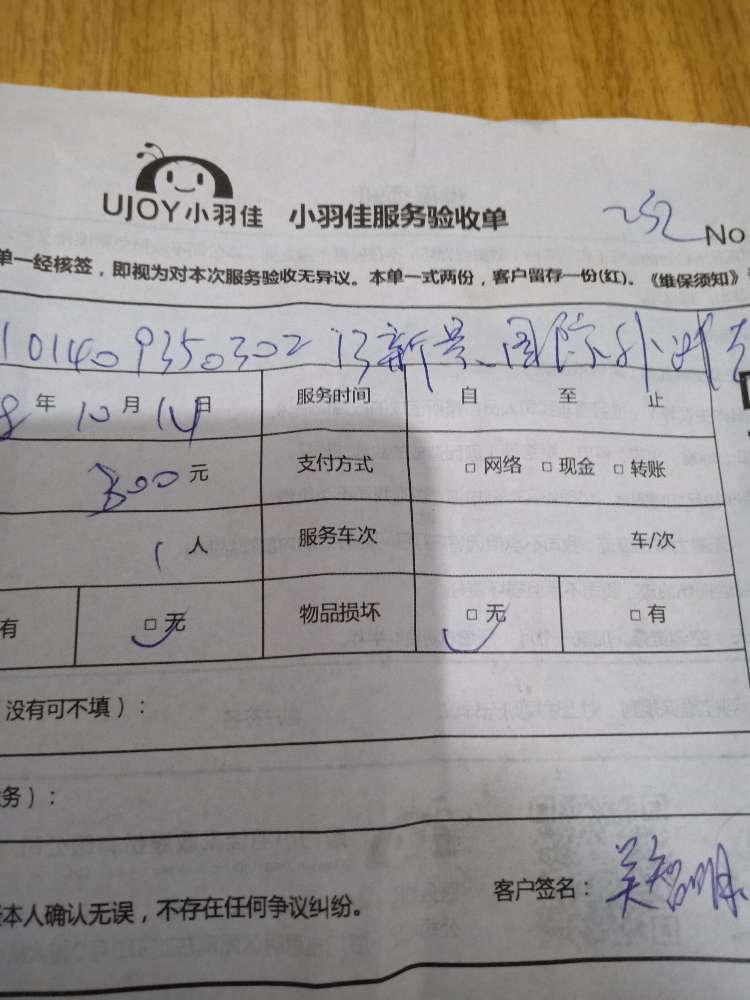 UJOY小羽佳 小羽佳服务验收单 No
单一经核签，即视为对本次服务验收无异议。本单一式两份，客户留存一份(红)。《维保须知》
101409350302 13新景国际外滩
8 年 10 月 14 日 服务时间 自 至 止
300 元 支付方式 □ 网络 □ 现金 □ 转账
1 人 服务车次 车/次
有 □ 无 物品损坏 □ 无 □ 有
没有可不填）：
务）：
本人确认无误，不存在任何争议纠纷。 客户签名：